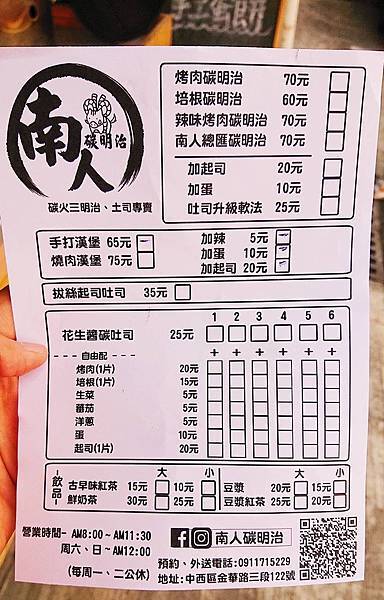 南人
碳明治
碳火三明治、土司專賣
烤肉碳明治 70元
培根碳明治 60元
辣味烤肉碳明治 70元
南人總匯碳明治 70元
加起司 20元
加蛋 10元
吐司升級軟法 25元
手打漢堡 65元
燒肉漢堡 75元
加辣 5元
加蛋 10元
加起司 20元
拔絲起司吐司 35元
1 2 3 4 5 6
花生醬碳吐司 25元
---自由配--- + + + + + +
烤肉(1片) 20元
培根(1片) 15元
生菜 5元
蕃茄 5元
洋蔥 5元
蛋 10元
起司(1片) 20元
-飲品-
大 小 大 小
古早味紅茶 15元 10元 豆漿 20元 15元
鮮奶茶 30元 25元 豆漿紅茶 25元 20元
營業時間- AM8:00~AM11:30
周六、日~AM12:00
(每周一、二公休)
南人碳明治
預約、外送電話:0911715229
地址:中西區金華路三段122號